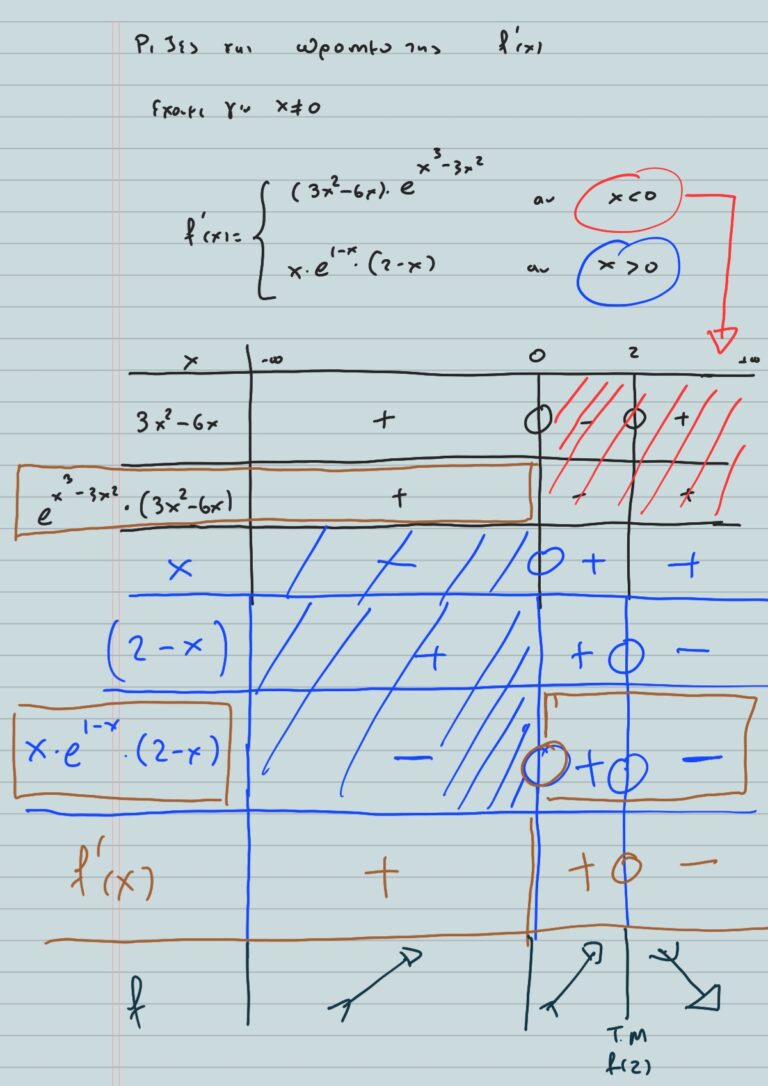 Ριζες και προσημο της f'(x)
Εχουμε για x≠0
f'(x)= { (3x²-6x)·e^{x³-3x²} αν x<0
x·e^{1-x}·(2-x) αν x>0
x -∞ 0 2 +∞
3x²-6x + 0 - 0 +
e^{x³-3x²}·(3x²-6x) + - +
x - 0 + +
(2-x) + + 0 -
x·e^{1-x}·(2-x) - 0 + 0 -
f'(x) + + 0 -
f
T.M
f(2)